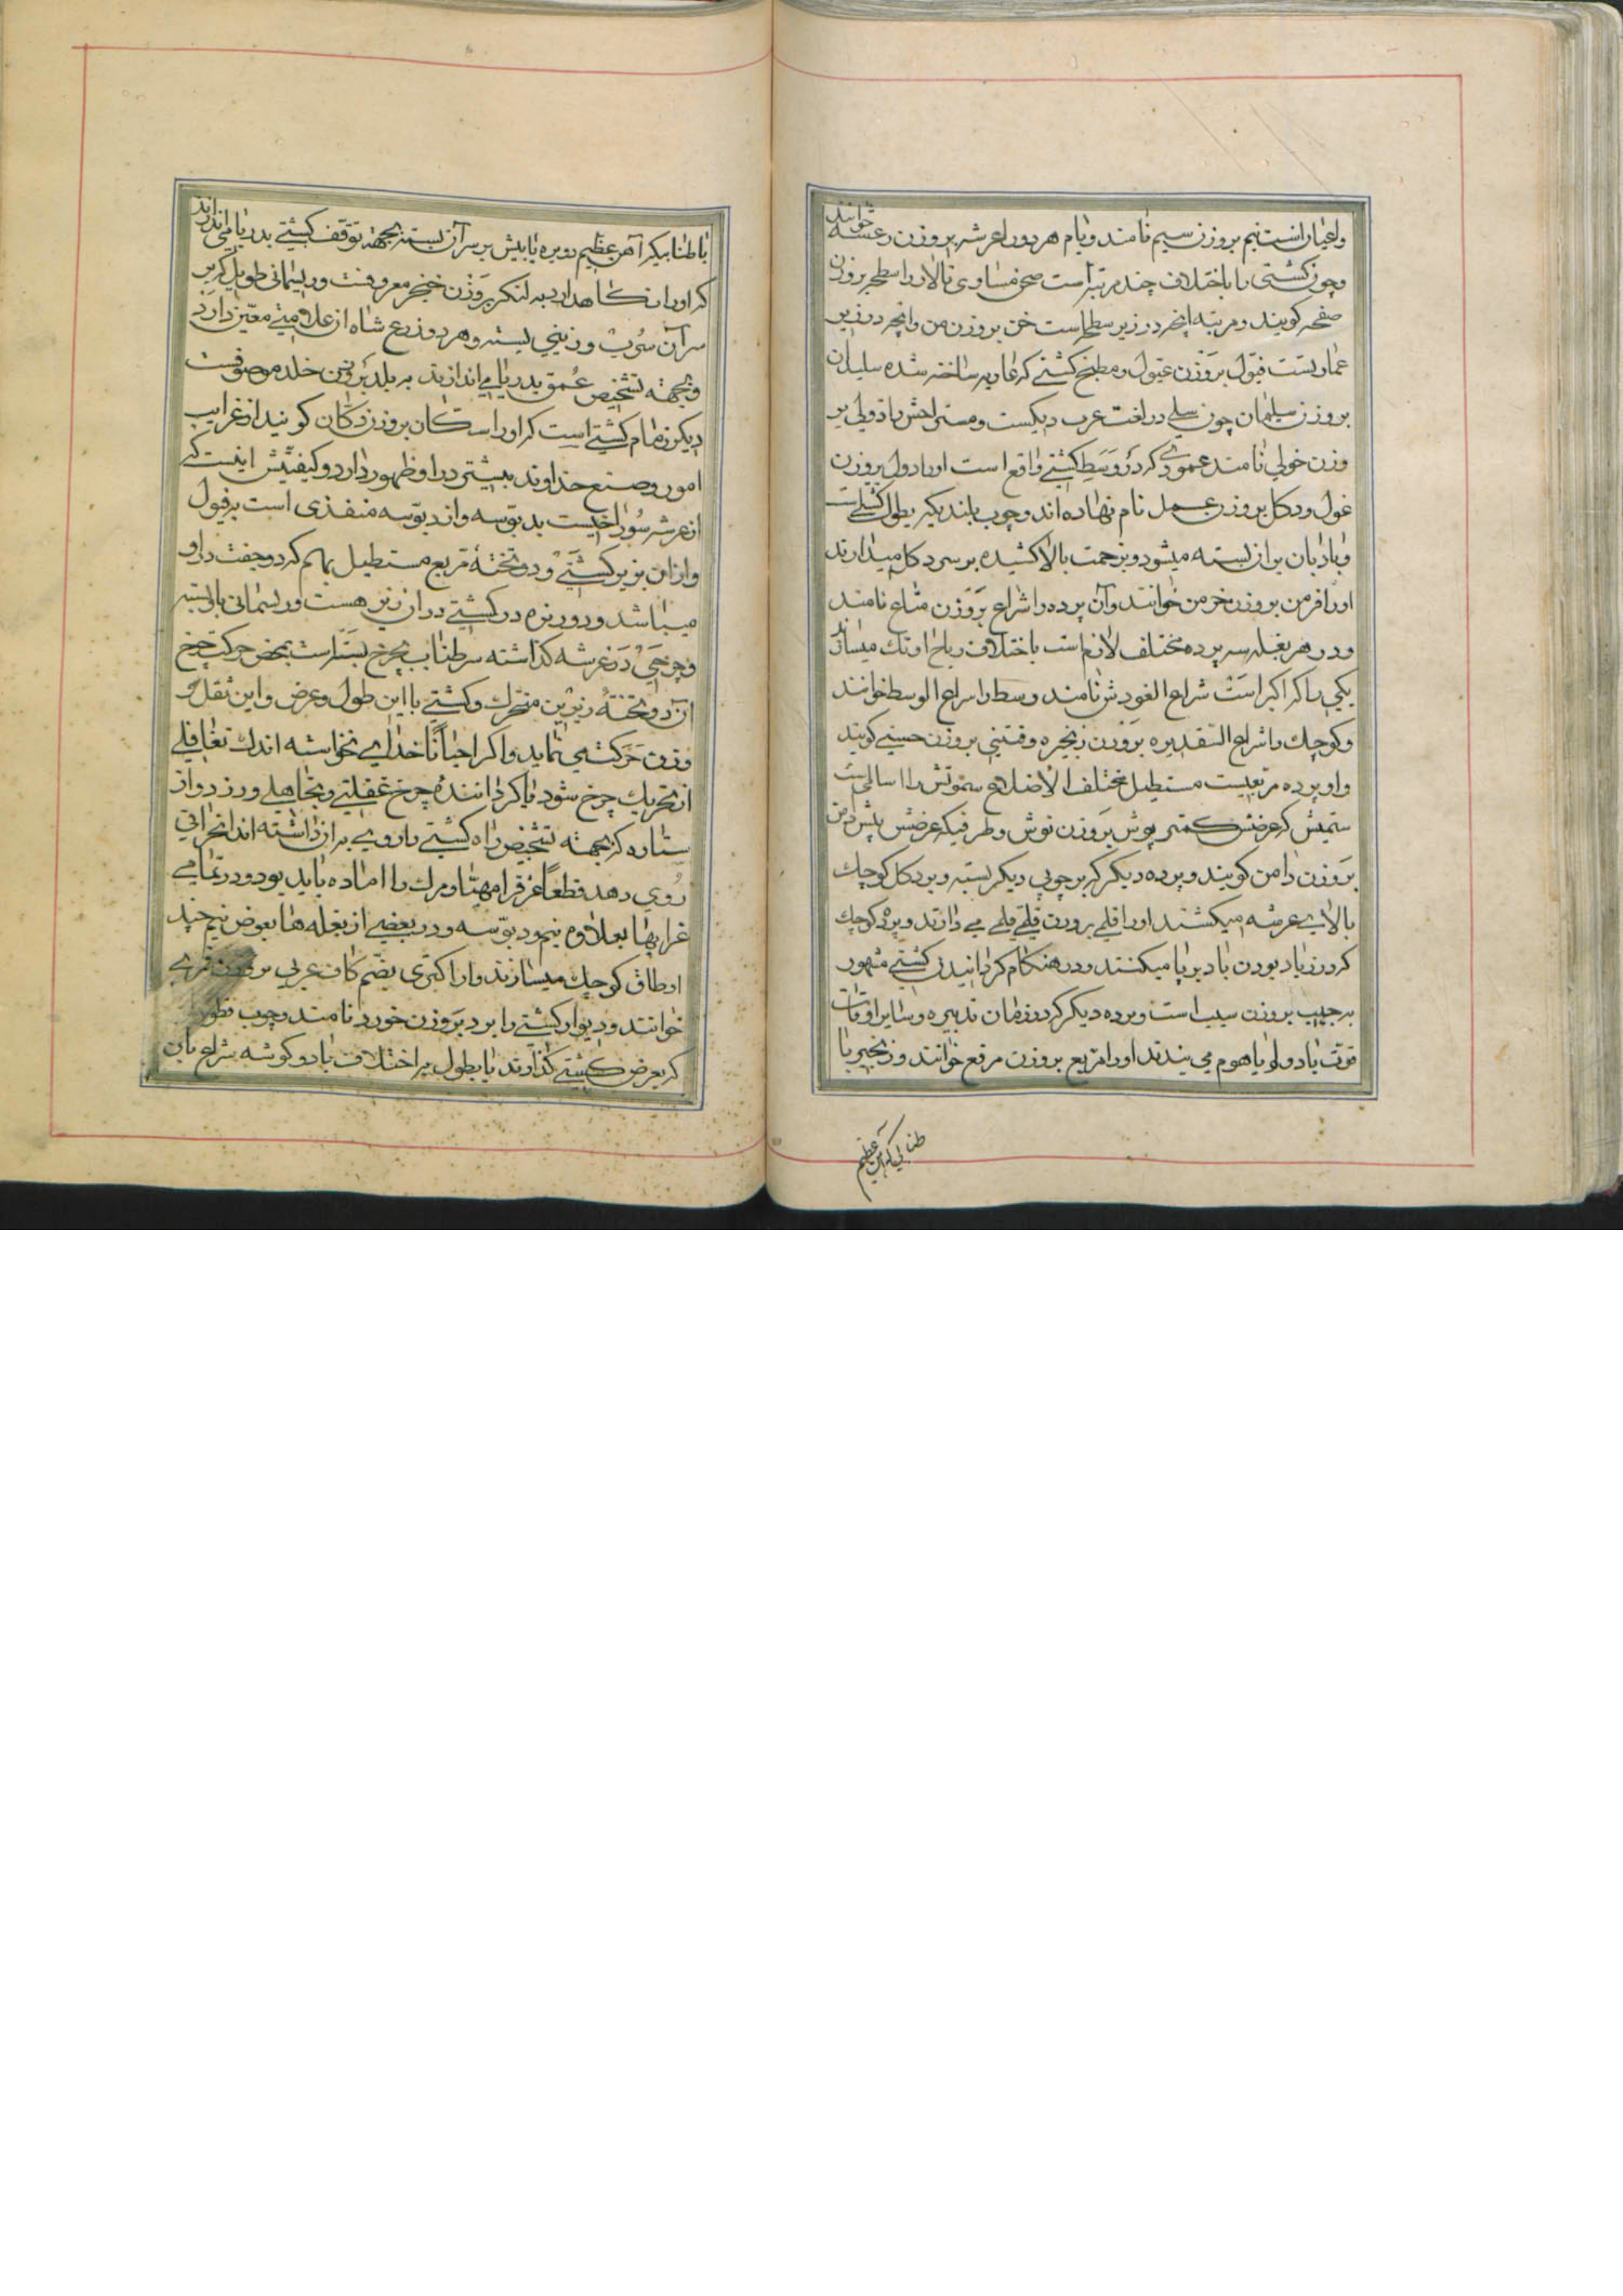 و اغیار است نیم بروزن سیم نامند و یام هر دو را عرشه بروزن رعشه خوانند
و چون کشتی را باختلاف چند مرتبه است صحن مساوی بالا را سطحه بروزن
صفحه کویند و مرتبه انچه در زیر سطحه است خن بروزن من و انچه در زیر
عمارتست فیول بروزن عیول و مطبخ کشتی که عاریه ساخته شده سلیدان
بروزن سیلمان چون سلی در لغت عرب دیکست و مستراحش باد ولی بر
وزن خولی نامند عمودی که در وسط کشتی واقع است او را دول بروزن
غول و دکل بروزن عمل نام نهاده اند و چوب بلند دیکر بطول کشتی است
و بادبان بر ان بسته میشود و بزحمت بالا کشیده بر سر دکل میدارند
او را فرمن بروزن خرمن خوانند و آن پرده را شراع بروزن متاع نامند
و در هر بغله سه پرده مختلف لازم است باختلاف ریاح اوتک میسازند
یکی را که اکبر است شراع العود ش نامند و وسط را شراع الوسط خوانند
و کوچک را شراع التقدیره بروزن زنجیره و فتینی بروزن حسینی کویند
و او پرده مربعیست مستطیل مختلف الاضلاع ستونش را اسالمی است
ستمیش که عرضش کمتر پوش بروزن نوش و طرفیکه عرضش بیش دمن
بروزن دامن کویند و پرده دیکر که بر چوبی دیکر بسته و بر دکل کوچک
بالای عرشه میکشند او را قلمی بروزن قلقلی می دانند و پرده کوچک
که در زیاد بودن باد برپا میکنند و در هنکام کردانیدن کشتی مشهور
به جیب بروزن سیب است و پرده دیکر که در زمان تدبیره و سایر اوقات
قوت باد و لو یا هوم می بندند او را مربع بروزن مرقع خوانند و زنجیر یا
طنابی که آهن عظیم
یا طنابیکه آهن عظیم دو پره یا بیش بر سر آن بسته بجهته توقف کشتی بدریا می اندازند
که او را نکاهدارد به لنکر بروزن خنجر معروفست و ریسمانی طویل که بر
سر آن سُرب وزینی بسته و هر دو زرع شاه از علامتی معین دارد
و بجهته تشخیص عمق بدریا می اندازند به بلد بروزن خلد موصوفست
دیکر زمام کشتی است که او را سکان بروزن دکان کویند از غرایب
امور و صنع خداوند بیشتر در او ظهور دارد و کیفیتش اینست که
از عرشه سوراخیست بدبوسه و از دبوسه منفذی است بفیول
و از ان بزیر کشتی و دو تخته مربع مستطیل بهم کرده جفت در او
میباشد و روزنه در کشتی در ان زیر هست و ریسمانی با و بسته
و چرخی در عرشه کذاشته سر طناب بچرخ بسته است بمحض حرکت چرخ
ان دو تخته زیرین متحرک و کشتی با این طول و عرض و این ثقل و
وزن حرکت می نماید و اکر احیانا ناخدا می نخواسته اندک تغافلی
از تحریک چرخ شود یا کرداننده چرخ غفلتی و تجاهلی ورزد و از
ستاره که بجهته تشخیص راه کشتی را روی بر ان داشته اند انحرافی
روی دهد قطعا غرق را مهیا و مرک را اماده باید بود و در تمامی
غرابها بعلاوه نیم و دبوسه و در بعضی از بغله ها بعوض نیم چند
اوطاق کوچک میسازند و ان را کبتری بضم کاف عربی بروزن
خوانند و دیوار کشتی را برد بروزن خورد نامند و چوب قطور
که بعرض کشتی کذارند یا بطول بر اختلاف باد و کوشه شراع بان